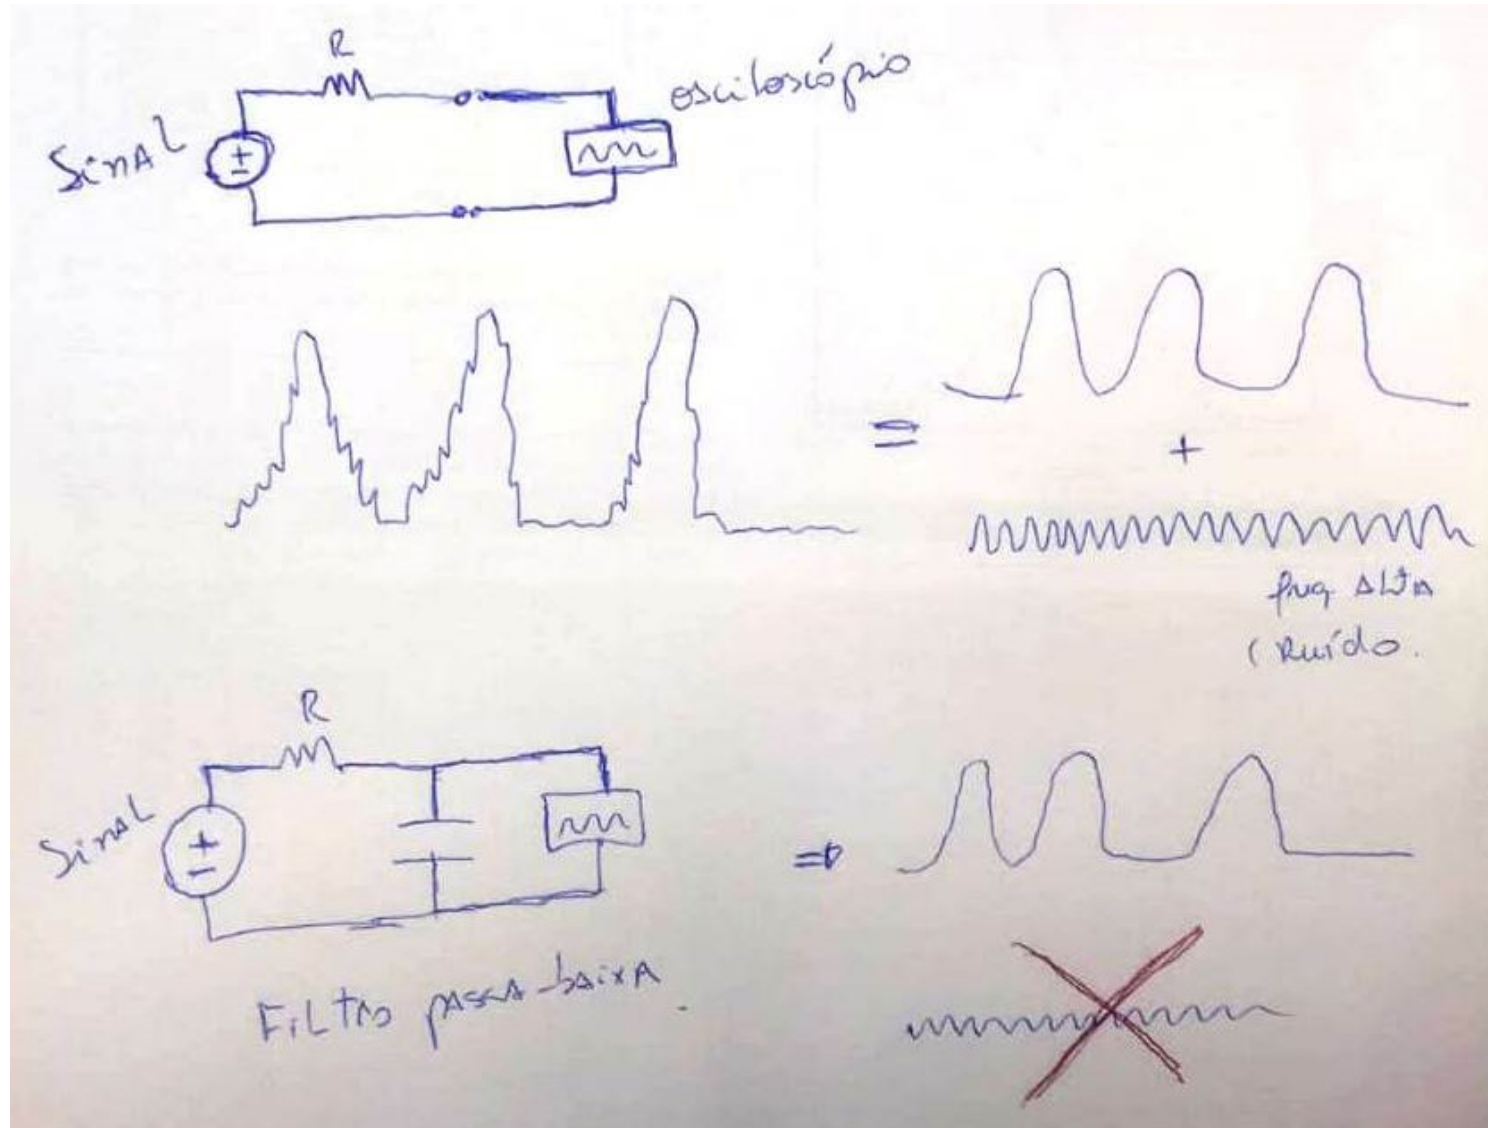 R
osciloscópio
SinAL
+
-
=
+
freq ALTA
( Ruído.
R
SinAL
+
-
⇒
FiLtro passa-baixA.